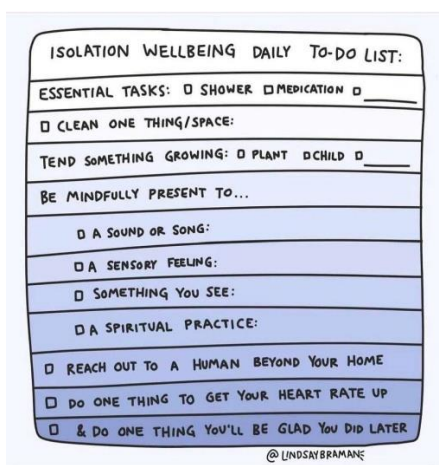 ISOLATION WELLBEING DAILY TO-DO LIST:
ESSENTIAL TASKS: □ SHOWER □ MEDICATION □ ______
□ CLEAN ONE THING/SPACE:
TEND SOMETHING GROWING: □ PLANT □ CHILD □ ______
BE MINDFULLY PRESENT TO...
□ A SOUND OR SONG:
□ A SENSORY FEELING:
□ SOMETHING YOU SEE:
□ A SPIRITUAL PRACTICE:
□ REACH OUT TO A HUMAN BEYOND YOUR HOME
□ DO ONE THING TO GET YOUR HEART RATE UP
□ & DO ONE THING YOU'LL BE GLAD YOU DID LATER
@LINDSAYBRAMAN